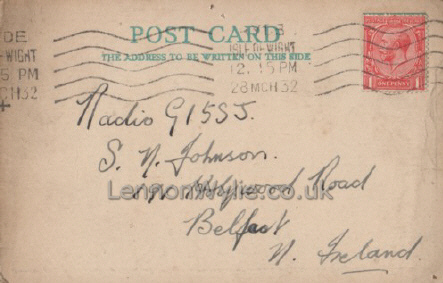 POST CARD
THE ADDRESS TO BE WRITTEN ON THIS SIDE
DE
WIGHT
5 PM
CH 32
ISLE OF WIGHT
12.15 PM
28 MCH 32
1 ONE PENNY 1
Radio G15SJ.
S. N. Johnson.
Holywood Road
Belfast
N. Ireland.
LennonWylie.co.uk